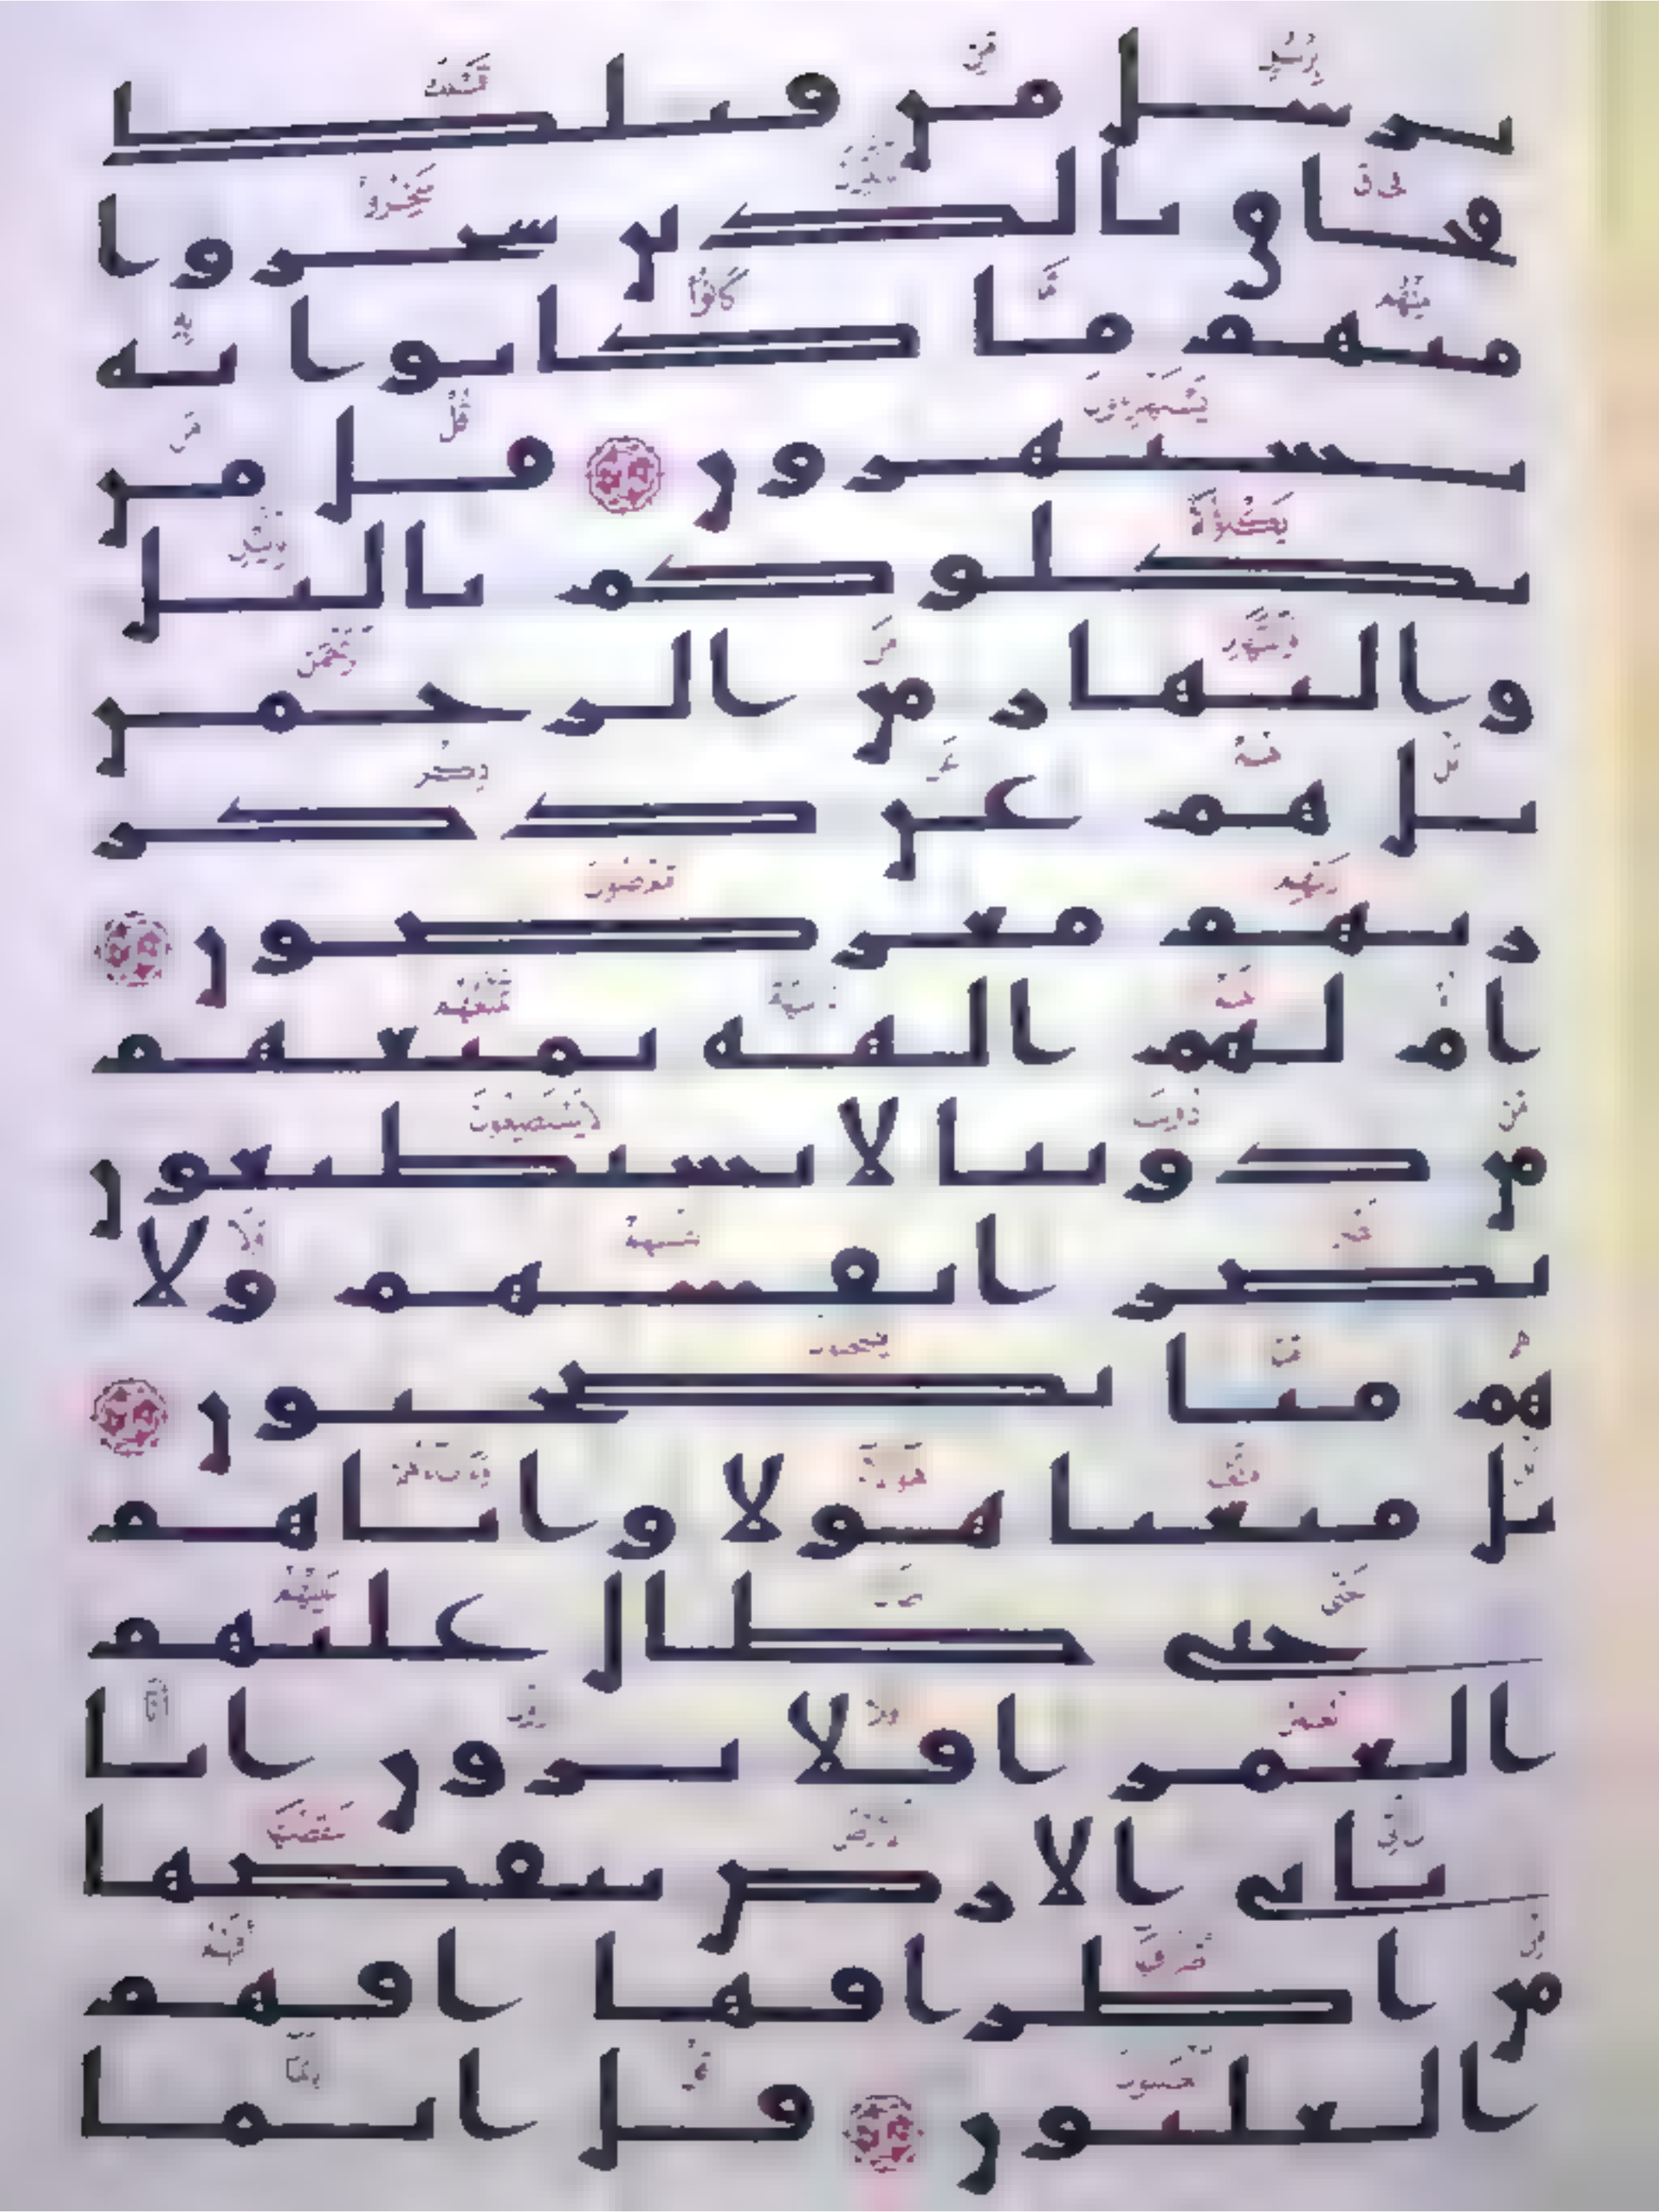 برسل من قبلك
فحاق بالذين سخروا
منهم ما كانوا به
يستهزون قل من
يكلوكم باليل
والنهار من الرحمن
بل هم عن ذكر
ربهم معرضون
ام لهم الهة تمنعهم
من دوننا لا يستطيعون
نصر انفسهم ولا
هم منا يصحبون
بل متعنا هولا واباهم
حتى طال عليهم
العمر افلا يرون انا
ناتى الارض ننقصها
من اطرافها افهم
الغلبون قل انما